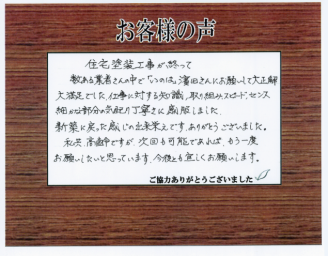 お客様の声
住宅塗装工事が終って
数ある業者さんの中で、いつの日、濱田さんにお願いして大正解
大満足でした。仕事に対する知識、取り組みスピード、センス
細かな部分の気配り丁寧さに感服しました。
新築に戻った感じの出来栄えです。ありがとうございました。
私共、高齢ですが、次回も可能であれば、もう一度
お願いしたいと思っています。今後とも宜しくお願いします。
ご協力ありがとうございました